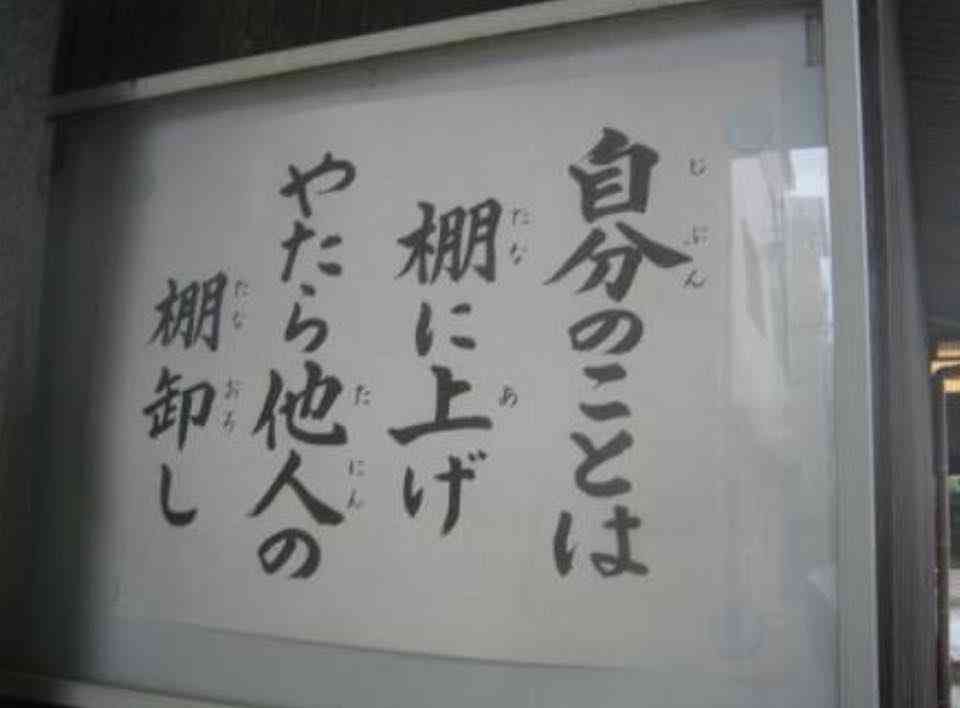 自分のことは
棚に上げ
やたら他人の
棚卸し
じ
ぶん
たな
あ
た
にん
たな
おろ